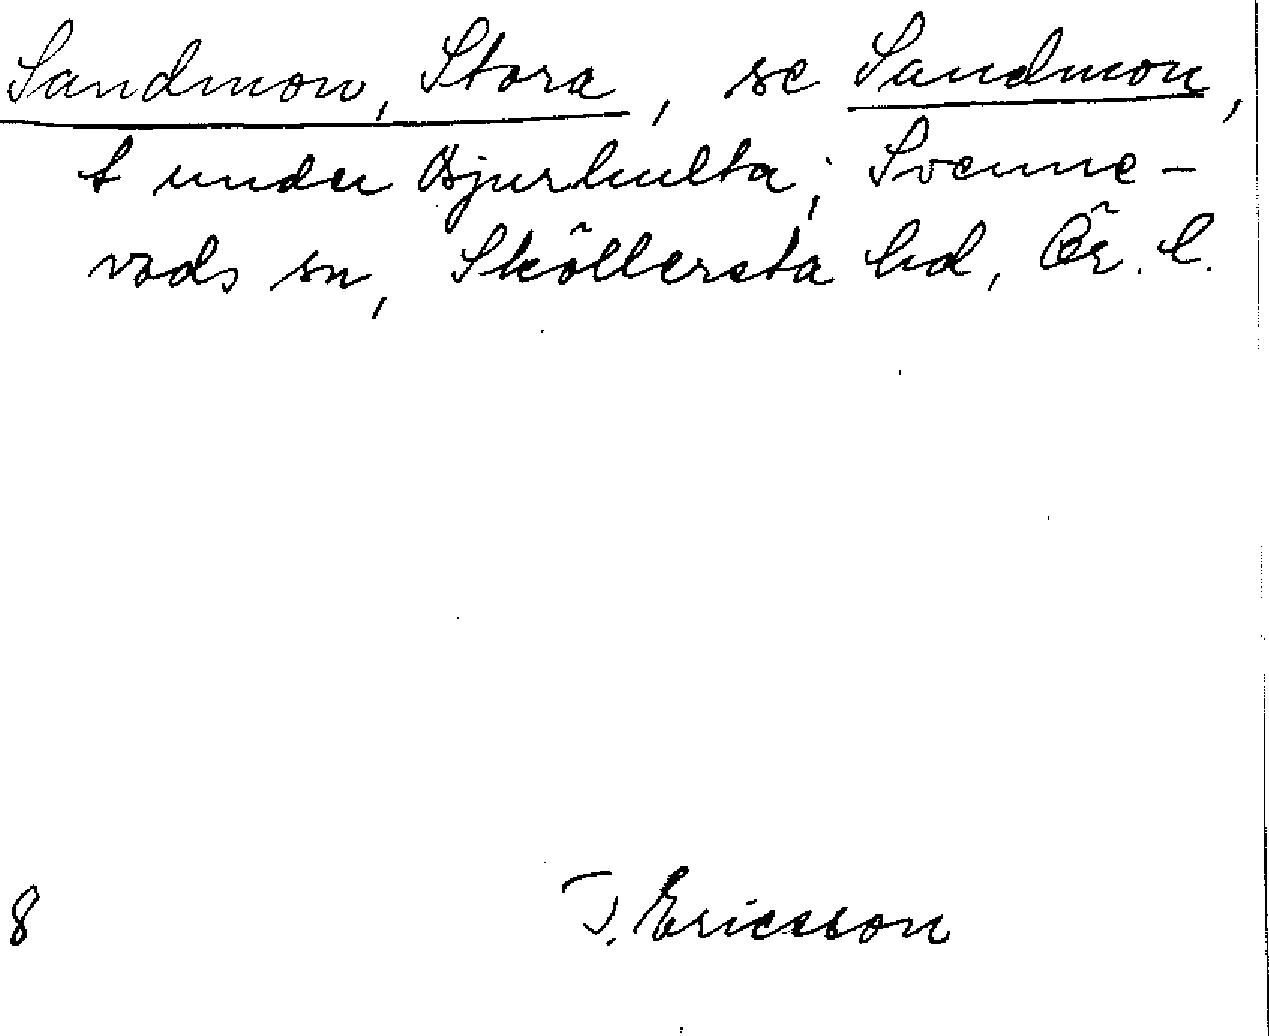 Sandmon, Stora, se Sandmon,
t under Bjurhulta, Svenne-
vads sn, Sköllersta hd, Ör. l.
8
J. Ericsson